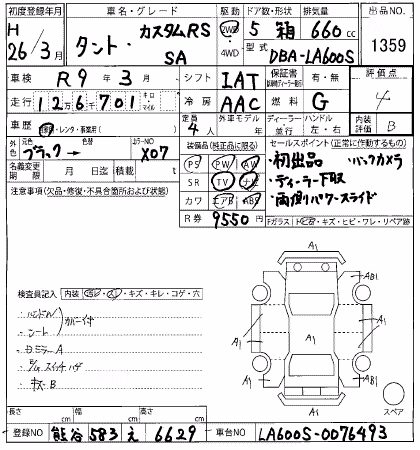 初度登録年月 車名・グレード 駆動 ドア数・形状 排気量 出品NO.
H 26/3月 タント カスタムRS SA 2WD 4WD 5 箱 660cc 1359
型式 DBA-LA600S
車検 R 9年 3月 シフト IAT 保証書 有・無 評価点
走行 12万6千701 キロ マイル 冷房 AAC 燃料 G 4
車歴 自家用・レンタ・事業用( ) 定員 4人 外車モデル 年 ディーラー・並行 ハンドル 左・右 内装 B
外色 元色 ブラック→ 色替 カラーNO X07 装備品(純正品に限る) セールスポイント(正常に作動するもの)
PS PW AW ・初出品 ・バックカメラ
名義変更期限 月 日迄 積載 t SR TV ナビ ・ディーラー下取
注意事項(欠品・修復・不具合箇所および状態) カワ エアB ABS ・両側パワースライド
R券 9550円 Fガラス トビ石・キズ・ヒビ・ワレ・リペア跡
A1
AB1
検査員記入 内装 ・キズ・キレ・コゲ・穴
・ハンドル
・シート カバー付
A1 A1 A1
・ミラーA
スイッチ
・キズB
A1 AB1
A1
スペア
長さ cm 幅 cm 高さ cm
登録NO 熊谷 583 え 6629 車台NO LA600S-0076493